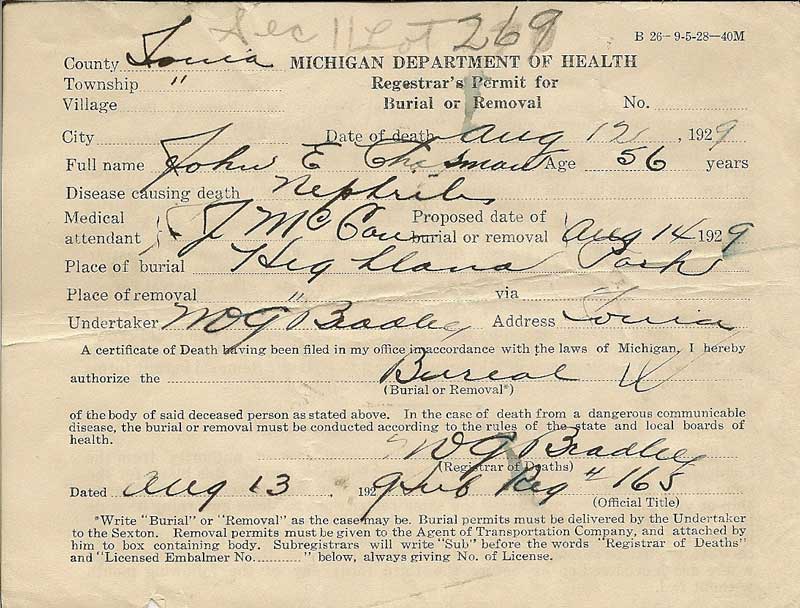 Sec 11 Lot 269
B 26—9-5-28—40M
County Ionia MICHIGAN DEPARTMENT OF HEALTH
Township " Regestrar's Permit for
Village Burial or Removal No.
City Date of death Aug 12, 1929
Full name John E Age 56 years
Disease causing death Nephritis
Medical attendant J Mc Proposed date of burial or removal Aug 14 1929
Place of burial Highland Park
Place of removal " via
Undertaker W G Bradley Address Ionia
A certificate of Death having been filed in my office in accordance with the laws of Michigan, I hereby
authorize the Bureal
(Burial or Removal*)
of the body of said deceased person as stated above. In the case of death from a dangerous communicable
disease, the burial or removal must be conducted according to the rules of the state and local boards of
health.
W G Bradley
(Registrar of Deaths)
Dated Aug 13 1929 Sub Reg # 165
(Official Title)
*Write "Burial" or "Removal" as the case may be. Burial permits must be delivered by the Undertaker
to the Sexton. Removal permits must be given to the Agent of Transportation Company, and attached by
him to box containing body. Subregistrars will write "Sub" before the words "Registrar of Deaths"
and "Licensed Embalmer No..........." below, always giving No. of License.